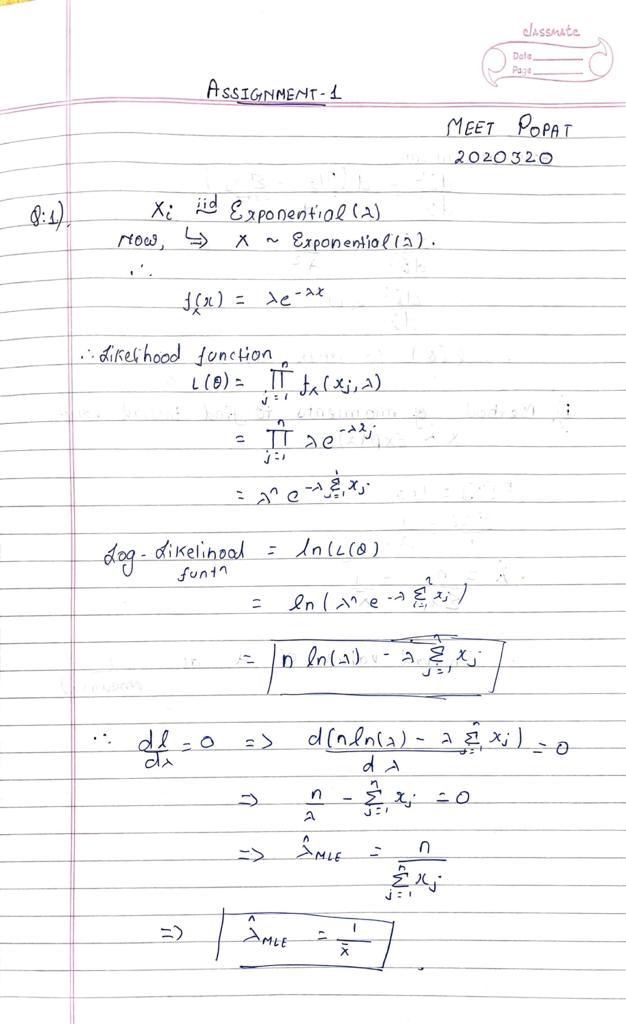 classmate
Date
Page
ASSIGNMENT-1
MEET POPAT
2020320
Q:1)
Xi iid Exponential(λ)
Now, ↳ X ~ Exponential(λ).
∴
fx(x) = λe^-λx
∴ Likelihood function
L(θ) = ∏_{j=1}^{n} fx(xj, λ)
= ∏_{j=1}^{n} λe^-λxj
= λ^n e^-λ Σ_{j=1} xj
Log-Likelihood = ln(L(θ)
funtn
= ln(λ^n e^-λ Σ_{i=1}^{n} xj)
= n ln(λ) - λ Σ_{j=1}^{n} xj
∵ dl/dλ = 0 => d(n ln(λ) - λ Σ_{j=1}^{n} xj)/dλ = 0
=> n/λ - Σ_{j=1}^{n} xj = 0
=> λ̂MLE = n/Σ_{j=1}^{n} xj
=> λ̂MLE = 1/x̄